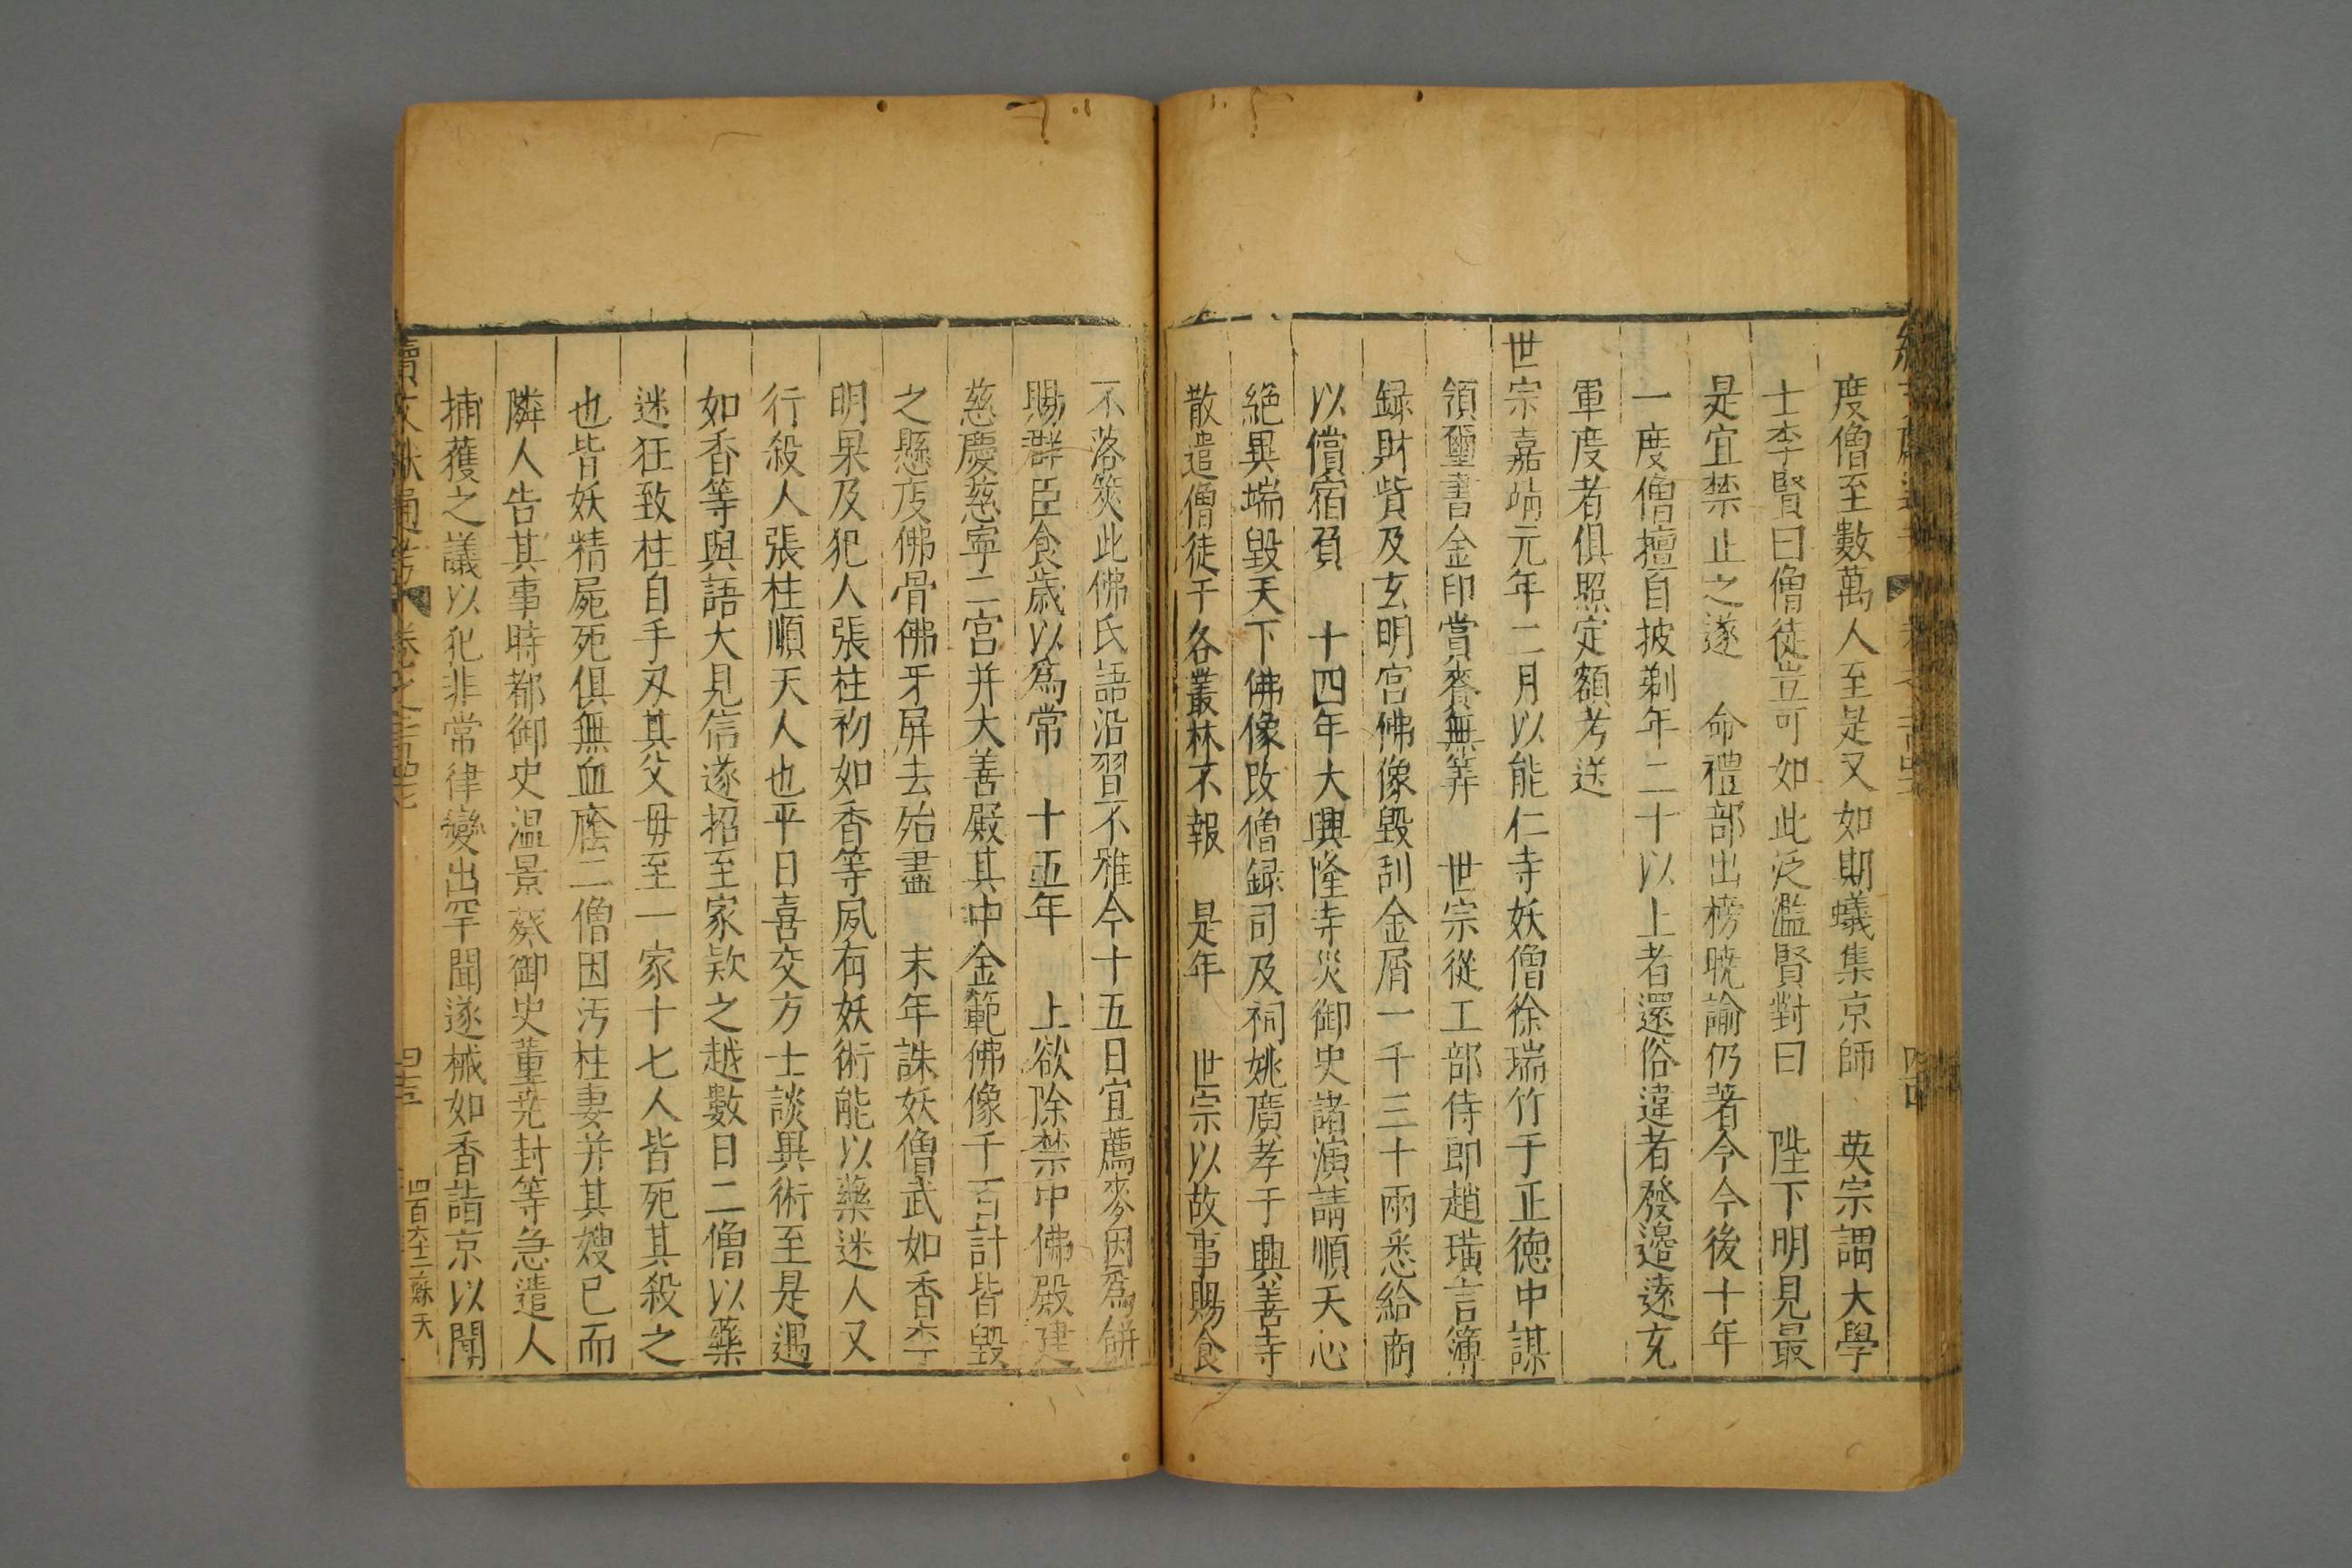 度僧至數萬人至是又如期蟻集京師 英宗謂大學
士李賢曰僧徒豈可如此泛濫賢對曰 陛下明見最
是宜禁止之遂 命禮部出榜曉諭仍著令今後十年
一度僧擅自披剃年二十以上者還俗違者發邊遠充
軍度者俱照定額考送
世宗嘉靖元年二月以能仁寺妖僧徐瑞竹于正德中謀
領璽書金印賞賚無筭 世宗從工部侍郎趙璜言簿
録財貲及玄明宮佛像毀刮金屑一千三十兩悉給商
以償宿負 十四年大興隆寺災御史諸演請順天心
絕異端毀天下佛像改僧録司及祠姚廣孝于興善寺
散遣僧徒于各叢林不報 是年 世宗以故事賜食
不落筴此佛氏語沿習不雅今十五日宜薦麥因為餅
賜群臣食歲以為常 十五年 上欲除禁中佛殿建
慈慶慈寧二宮并大善殿其中金範佛像千百計皆毀
之懸庋佛骨佛牙屏去殆盡 末年誅妖僧武如香李
明果及犯人張柱初如香等夙有妖術能以藥迷人又
行殺人張柱順天人也平日喜交方士談異術至是遇
如香等與語大見信遂招至家欵之越數日二僧以藥
迷狂致柱自手刄其父毋至一家十七人皆死其殺之
也皆妖精屍死俱無血廕二僧因汚柱妻并其嫂已而
隣人告其事時都御史温景葵御史董尭封等急遣人
捕獲之議以犯非常律變出罕聞遂械如香詣京以聞
續文獻通考 卷之
四百六十二 天